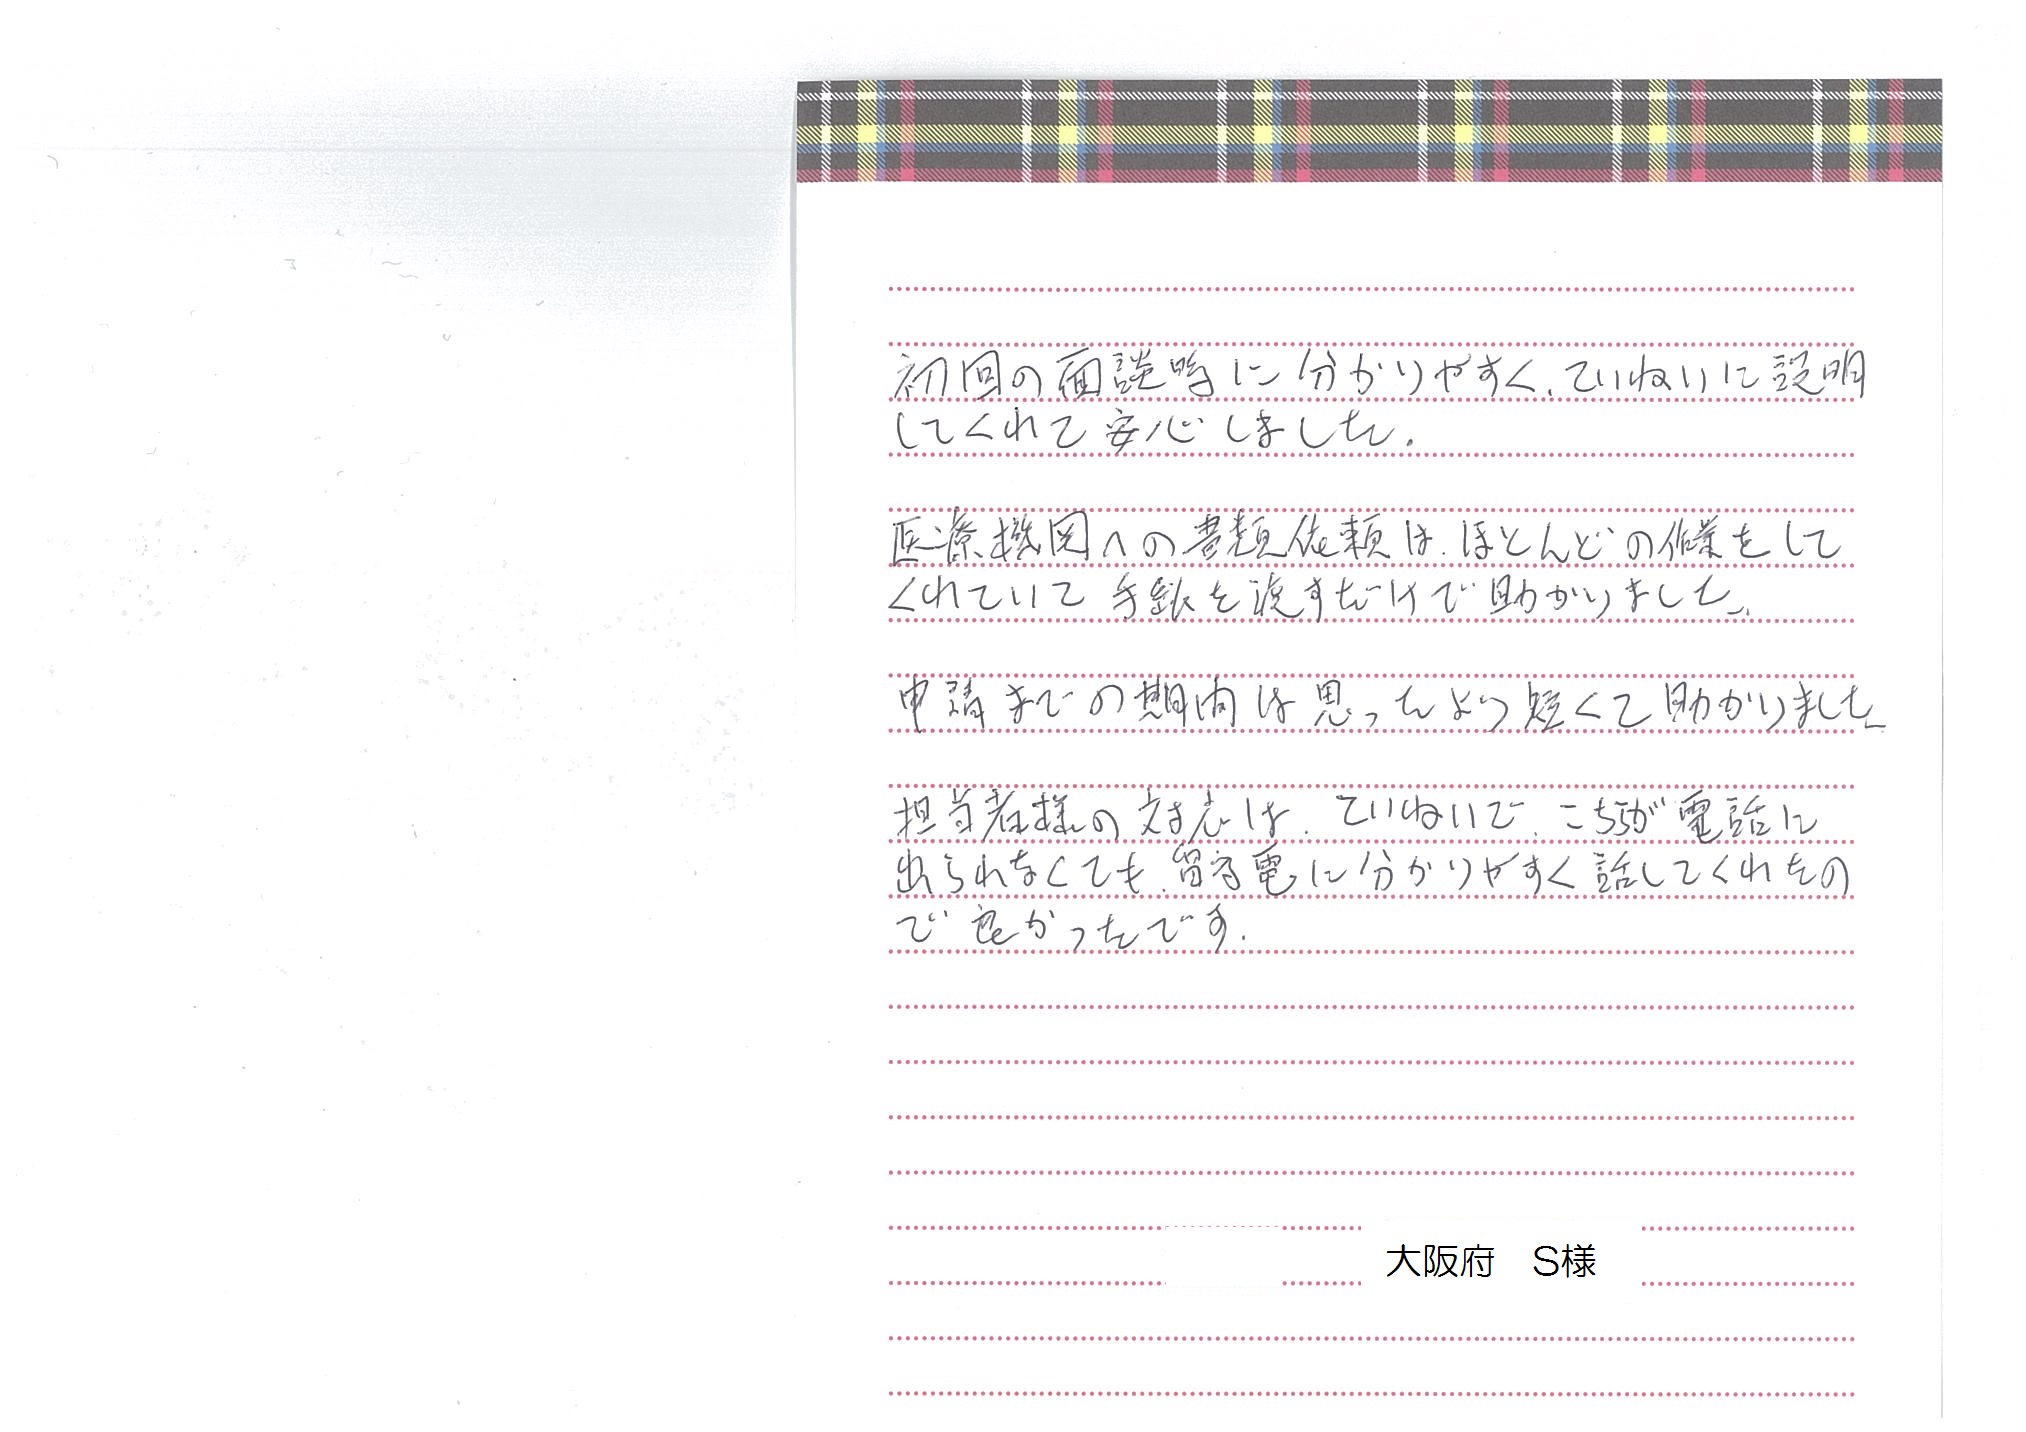 初回の面談時に分かりやすく、ていねいに説明
してくれて安心しました。
医療機関への書類依頼は、ほとんどの作業をして
くれていて手紙を渡すだけで助かりました。
申請までの期間は思ったより短くて助かりました
担当者様の対応は、ていねいで、こちらが電話に
出られなくても、留守電に分かりやすく話してくれたの
で良かったです。
大阪府　S様